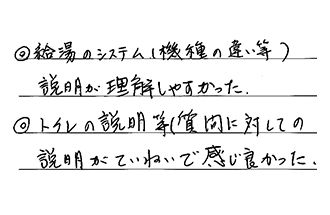 ◎給湯のシステム(機種の違い等)
説明が理解しやすかった.
◎トイレの説明等(質問に対しての
説明がていねいで感じ良かった.